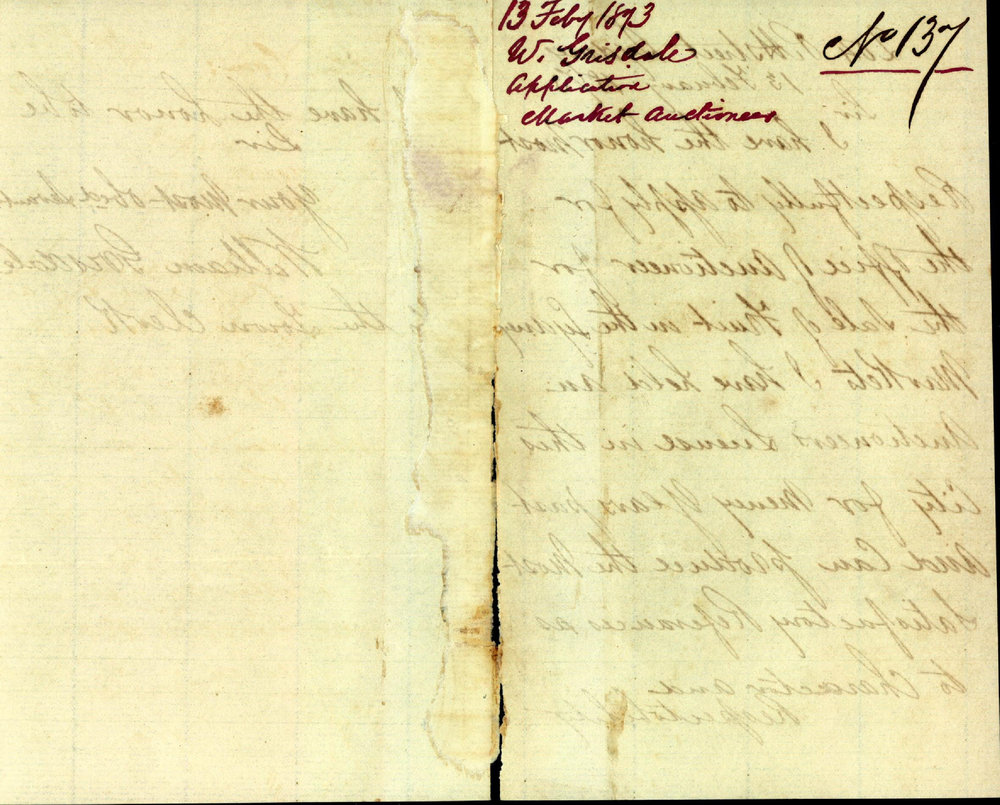 13 Feby 1873
W. Grisdale
Application
Market Auctioneer
No 137
Sir
I have the honor most
Respectfully to apply for
the Office of Auctioneer for
the Sale of Fruit in the Sydney
Markets I have held an
Auctioneers Licence in this
City for Meny Years past
And Can produce the Most
Satisfactory Referances as
to Charactor and
I have the honor to be
Sir
Your Most Obet Servt
William Grisdale
the Town Clerk